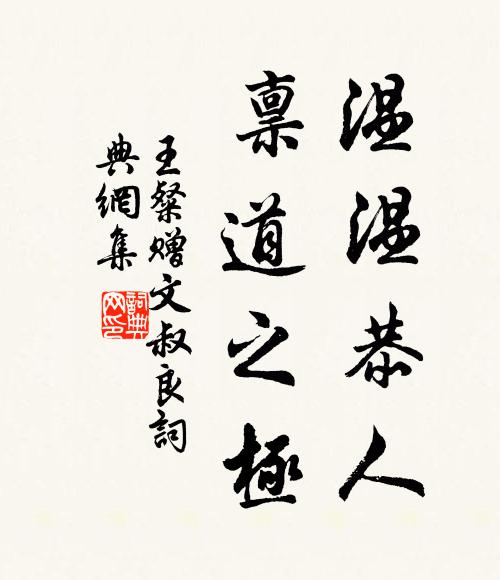 温温恭人
稟道之極
王粲赠文叔良詞
典網集
詞典
网印